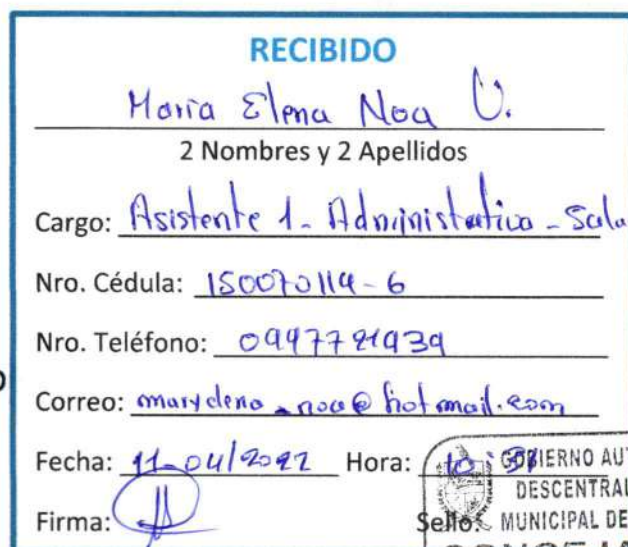 RECIBIDO
María Elena Noa U.
2 Nombres y 2 Apellidos
Cargo: Asistente 1 - Administrativa - Sala
Nro. Cédula: 150070114-6
Nro. Teléfono:
Correo:
Fecha: 11-04/2022 Hora: 10:
Firma:
Sello:
GOBIERNO AU
DESCENTRAL
MUNICIPAL DE